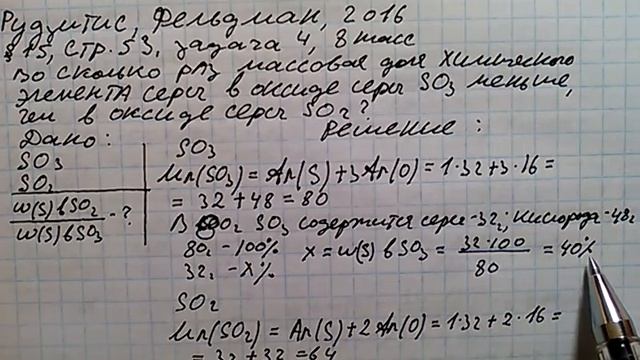 Рудзитис, Фельдман, 2016
§15, стр. 53, задача 4, 8 класс
Во сколько раз массовая доля химического
элемента серы в оксиде серы SO3 меньше,
чем в оксиде серы SO2?
Дано: Решение:
SO3
SO2
w(S) в SO2 / w(S) в SO3 - ?
SO3
Mr(SO3) = Ar(S) + 3Ar(O) = 1·32 + 3·16 =
= 32 + 48 = 80
В SO3 содержится серы - 32г, кислорода - 48г
80г - 100%
32г - X%
X = w(S) в SO3 = 32·100 / 80 = 40%
SO2
Mr(SO2) = Ar(S) + 2Ar(O) = 1·32 + 2·16 =
= 32 + 32 = 64